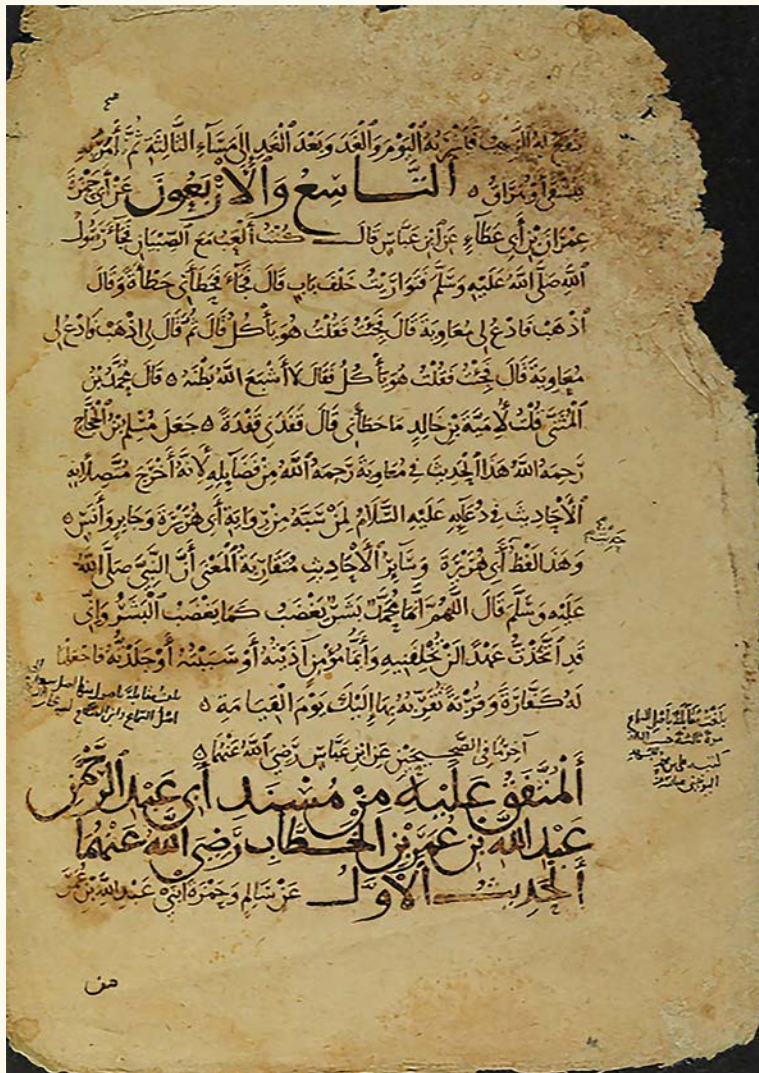 ينقع له الزبيب فيشربه اليوم والغد وبعد الغد إلى مساء الثالثة ثم أمر به
فيسقى أو يهراق ه التاسع والأربعون عن أبي حمزة
عمران بن أبي عطاء عن ابن عباس قال كنت ألعب مع الصبيان فجاء رسول
الله صلى الله عليه وسلم فتواريت خلف باب قال فجاء فحطأني حطأة وقال
اذهب فادع لي معاوية قال فجئت فقلت هو يأكل قال ثم قال لي اذهب فادع لي
معاوية قال فجئت فقلت هو يأكل فقال لا أشبع الله بطنه ه قال محمد بن
المثنى قلت لأمية بن خالد ما حطأني قال قفدني قفدة ه جعل مسلم بن الحجاج
رحمه الله هذا الحديث في معاوية رحمه الله من فضائله لأنه أخرج متصلا به
الأحاديث في دعائه عليه السلام لمن سبه من رواية أبي هريرة وجابر وأنس ه
وهذا لفظ أبي هريرة وسائر الأحاديث متقاربة المعنى أن النبي صلى الله
عليه وسلم قال اللهم إنما محمد بشر يغضب كما يغضب البشر وإني
قد اتخذت عهدا لن تخلفنيه وأيما مؤمن آذيته أو سببته أو جلدته فاجعلها
له كفارة وقربة تقربه بها إليك يوم القيامة ه
آخر ما في الصحيحين عن ابن عباس رضي الله عنهما ه
المتفق عليه من مسند أبي عبد الرحمن
عبد الله بن عمر بن الخطاب رضي الله عنهما
الحديث الأول عن سالم وحمزة ابني عبد الله بن عمر
بلغت مقابلة بأصل السماع
مرة ثالثة